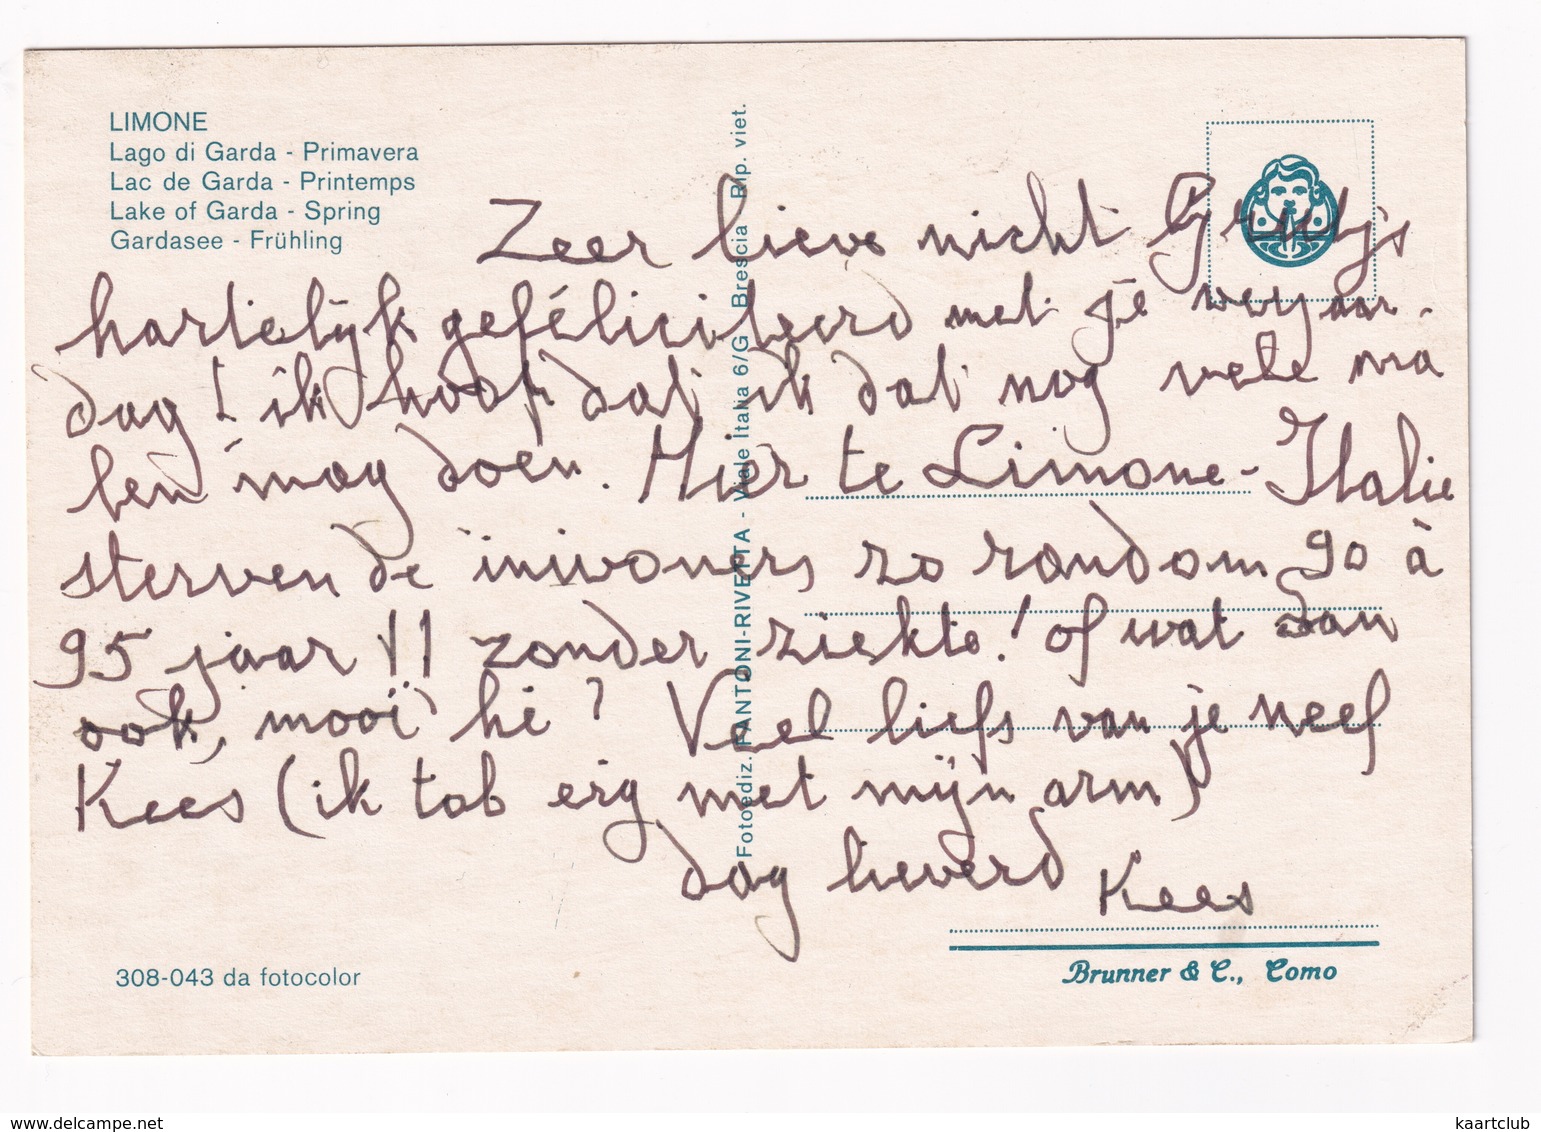 LIMONE
Lago di Garda - Primavera
Lac de Garda - Printemps
Lake of Garda - Spring
Gardasee - Frühling
Zeer lieve nicht
hartelijk gefeliciteerd met je verjaar-
dag! ik hoop dat ik dat nog vele ma
len mag doen. Hier te Limone - Italie
sterven de inwoners zo rondom 90 à
95 jaar !! zonder ziekte! of wat dan
ook, mooi hè? Veel liefs van je neef
Kees (ik tob erg met mijn arm)
dag lieverd Kees
Fotoediz. FANTONI-RIVETTA - Viale Italia 6/G Brescia Rip. viet.
308-043 da fotocolor
Brunner & C., Como
www.delcampe.net
kaartclub